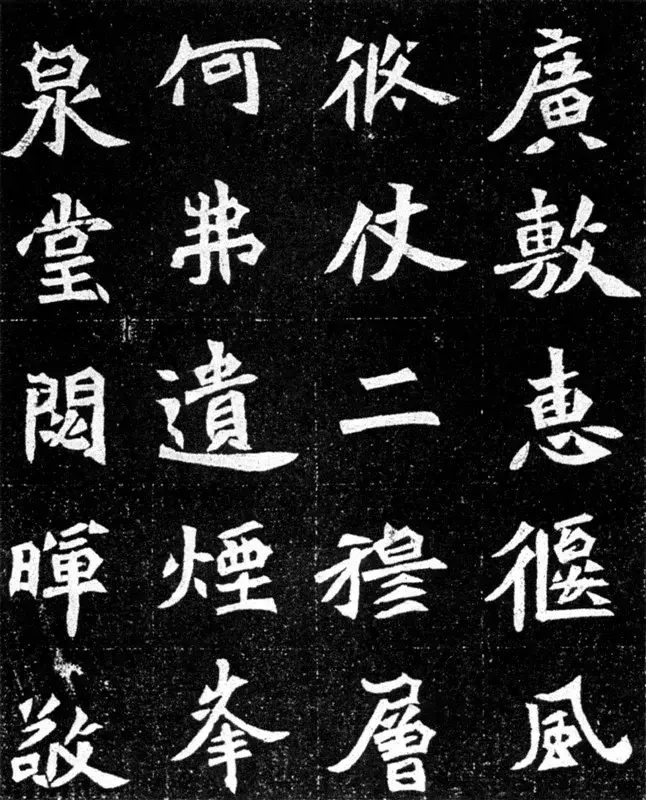 廣敷惠偃風
脩仗二穆層
何弗遺煙峯
泉堂閟暉敬